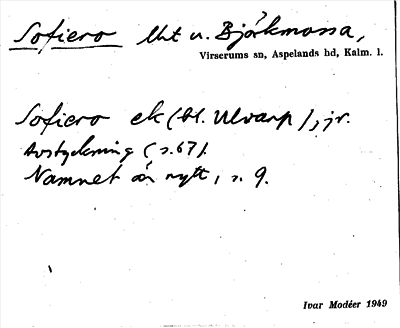 Sofiero lht u. Björkmossa,
Virserums sn, Aspelands hd, Kalm. l.
Sofiero ek (bl. Ulvarp), jr.
Avstyckning (s. 67).
Namnet är nytt, s. 9.
Ivar Modéer 1949